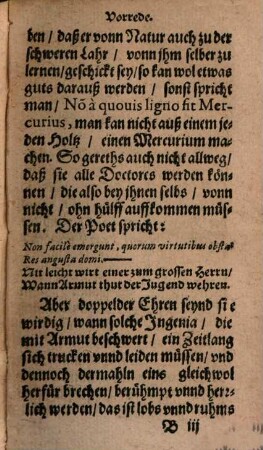 Vorrede.
ben / daß er vonn Natur auch zu der
schweren Lahr / vonn jhm selber zu
lernen / geschickt sey / so kan wol etwas
guts darauß werden / sonst spricht
man / Nõ à quouis ligno fit Mer-
curius, man kan nicht auß einem je-
den Holtz / einen Mercurium ma-
chen. So gereths auch nicht allweg /
daß sie alle Doctores werden kön-
nen / die also bey jhnen selbs / vonn
nicht / ohn hülff auffkommen müs-
sen. Der Poet spricht:
Non facilè emergunt, quorum virtutibus obstat
Res angusta domi.
Nit leicht wirt einer zum grossen Herrn /
Wann Armut thut der Jugend wehren.
Aber doppelder Ehren seynd sie
wirdig / wann solche Ingenia / die
mit Armut beschwert / ein Zeitlang
sich trucken vnnd leiden müssen / vnd
dennoch dermahln eins gleichwol
herfür brechen / berühmpt vnnd herr-
lich werden / das ist lobs vnnd ruhms
B iij